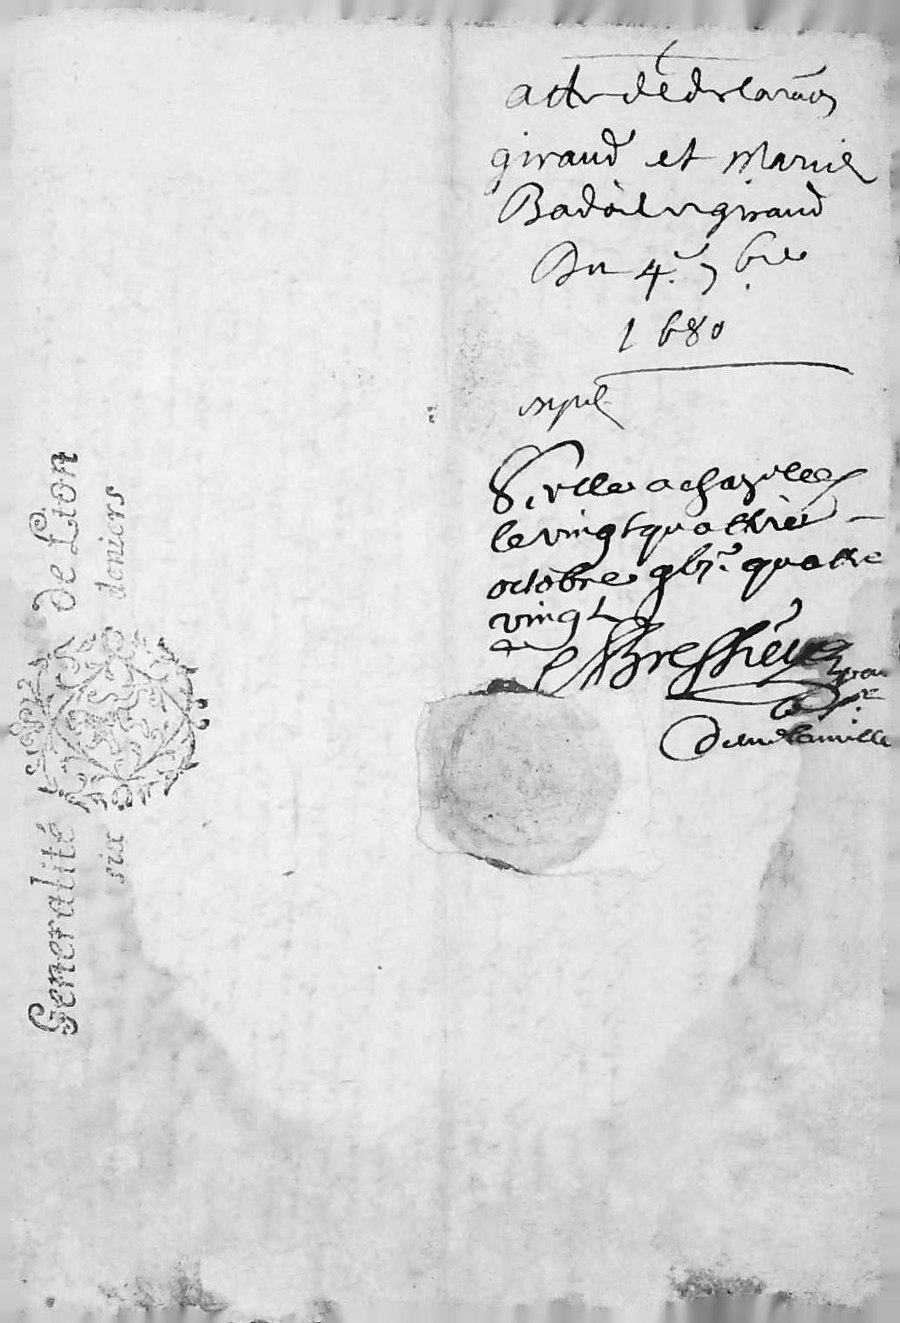 acte de declaraõn
giraud et Marie
Badoil giraud
Du 4.e 7.bre
1680
Scelle a chazelles
le vingt quattrie
octobre quattre
vingt
Generalité de Lion
six deniers